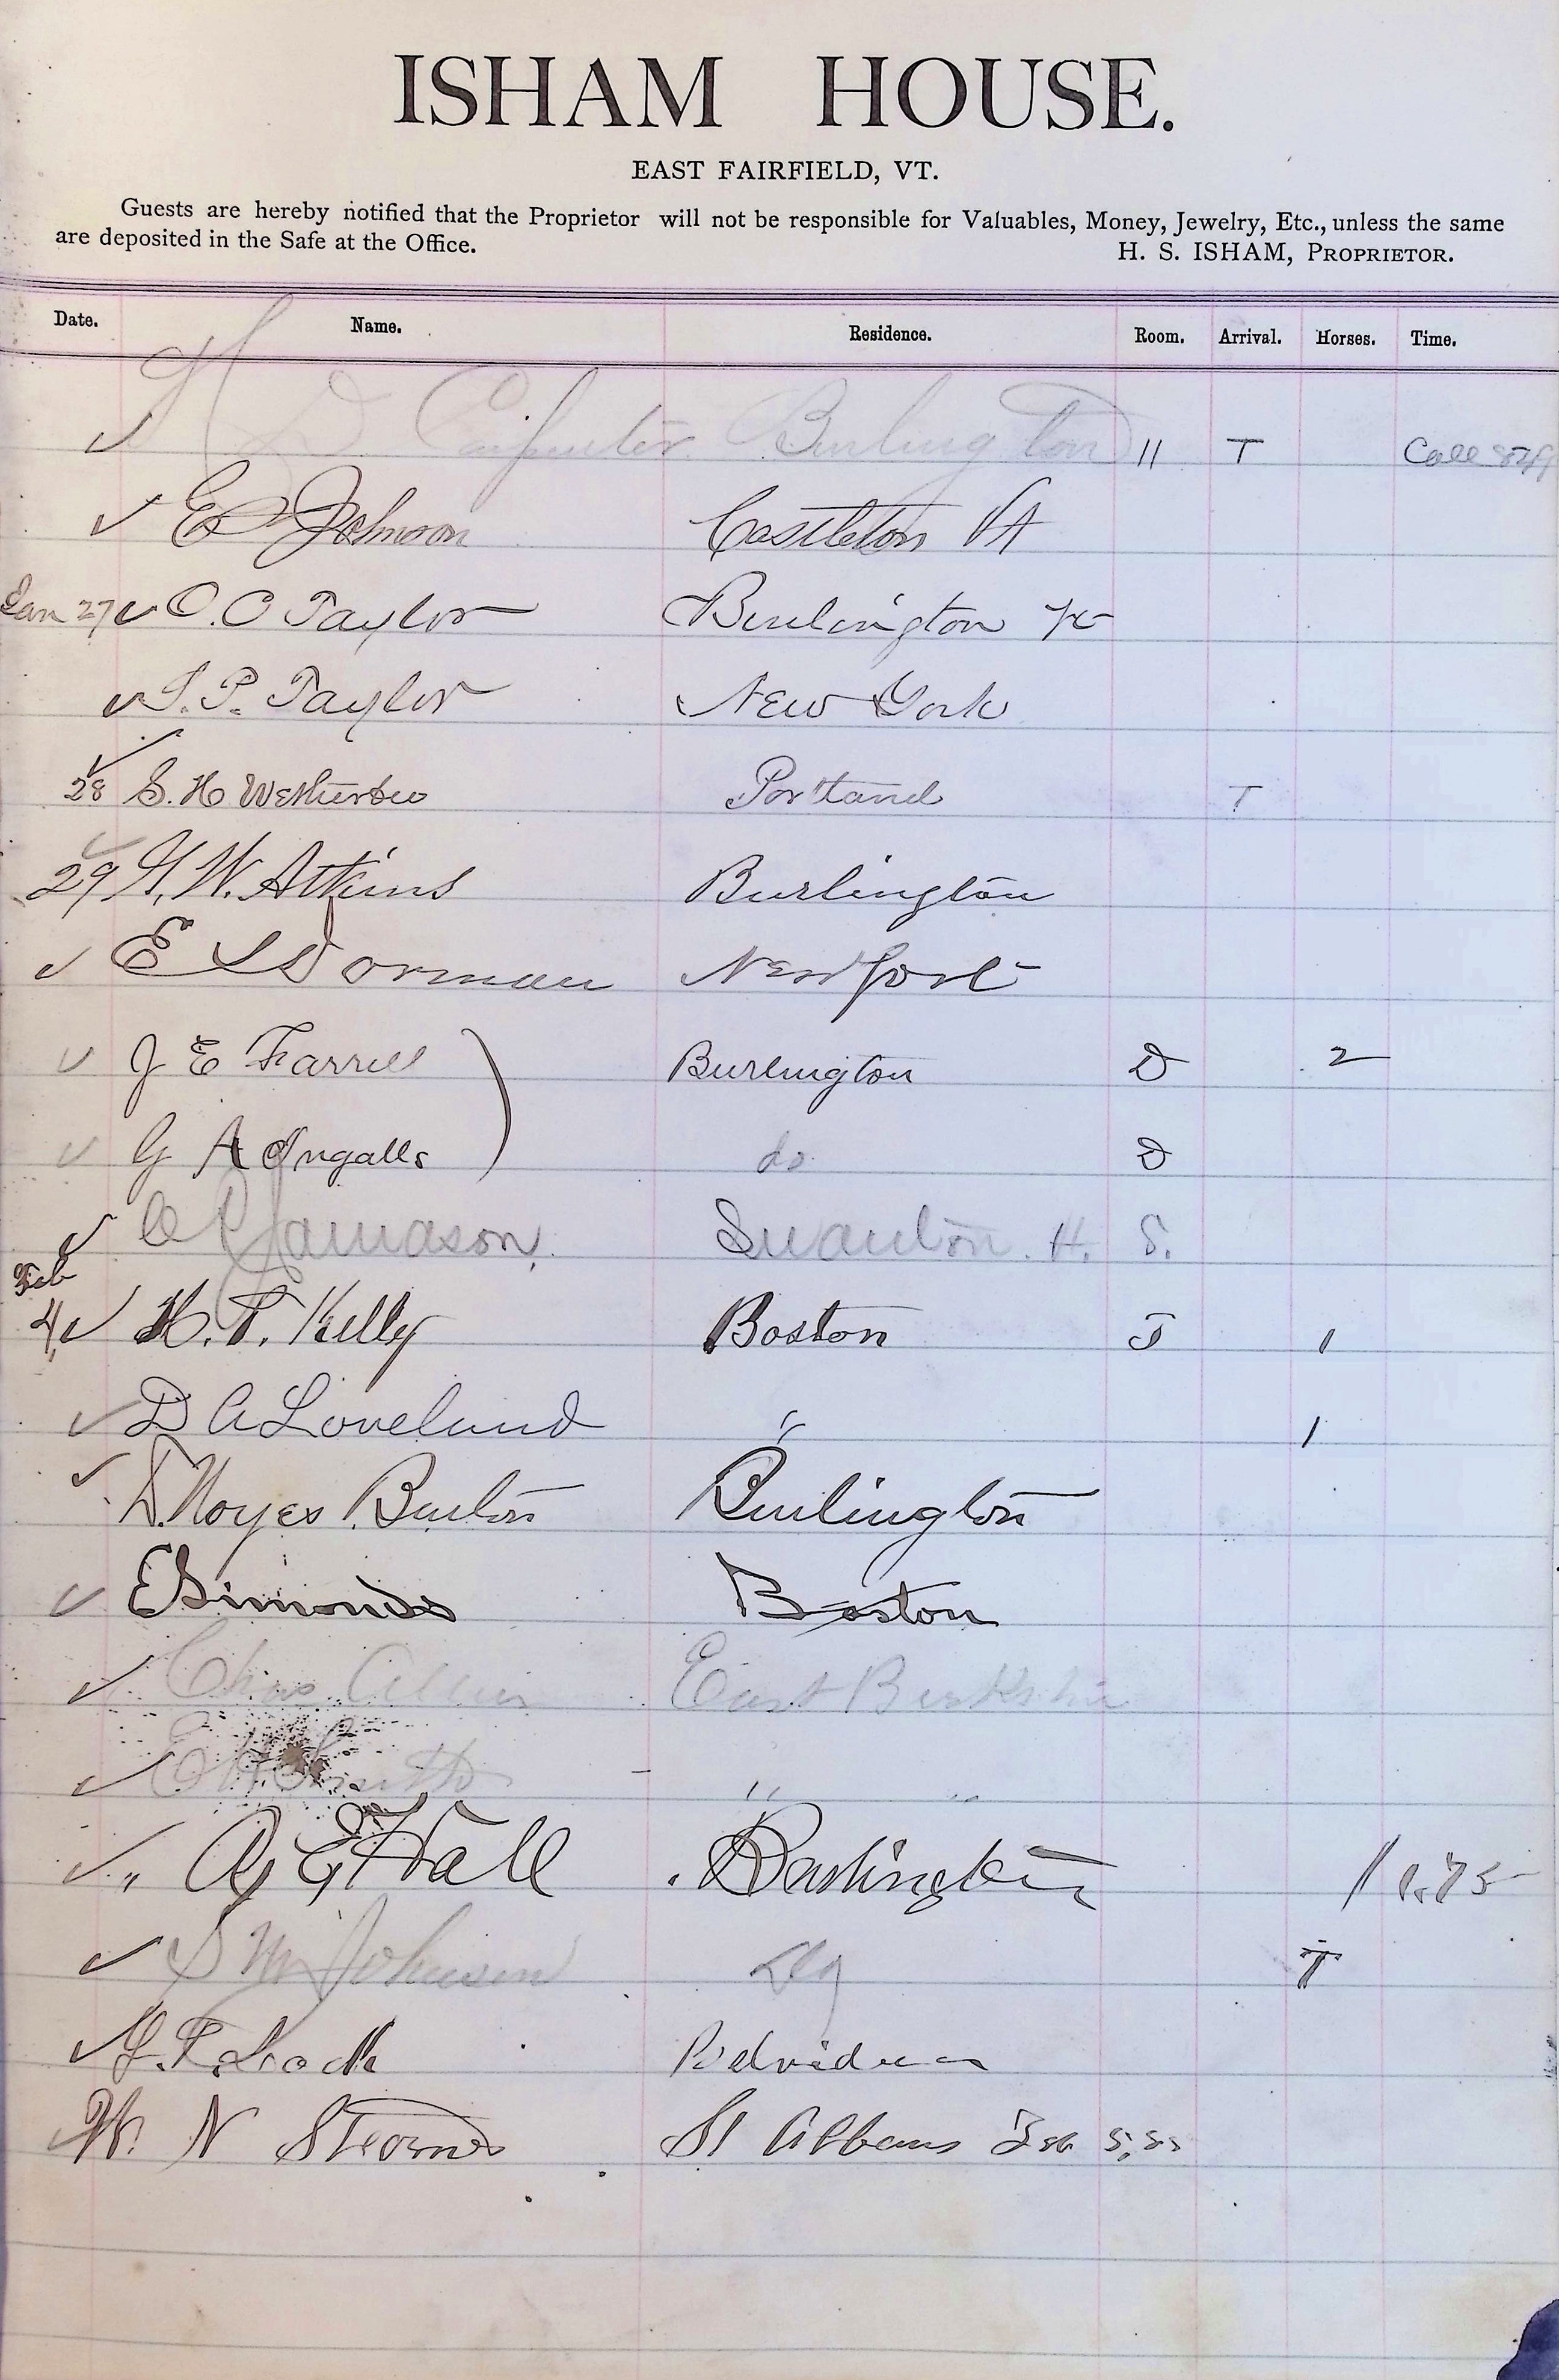 ISHAM HOUSE.
EAST FAIRFIELD, VT.
Guests are hereby notified that the Proprietor will not be responsible for Valuables, Money, Jewelry, Etc., unless the same
are deposited in the Safe at the Office. H. S. ISHAM, PROPRIETOR.
Date. Name. Residence. Room. Arrival. Horses. Time.
✓ H D Carpenter Burlington 11 T Call
✓ E Johnson Castleton Vt
Jan 27 ✓ O. C Taylor Burlington Vt
✓ S. P. Taylor New York
✓ 28 S. H Wetherbee Portland T
✓ 29 G. W. Atkins Burlington
✓ E L Dorman Newport
✓ J E Farrell Burlington D 2
✓ G A Ingalls do D
✓ C P Jamason. Swanton. H. S.
Feb
4, ✓ H. T. Kelly Boston T 1
✓ D A Loveland " 1
✓ D. Noyes Burton Burlington
✓ E Simonds Boston
✓ Chas East Berkshire
✓ E H Smith " "
✓ " A E Hall Burlington 1 1.75
✓ S M Johnson T
✓ Belvidere
W. N St Albans Feb